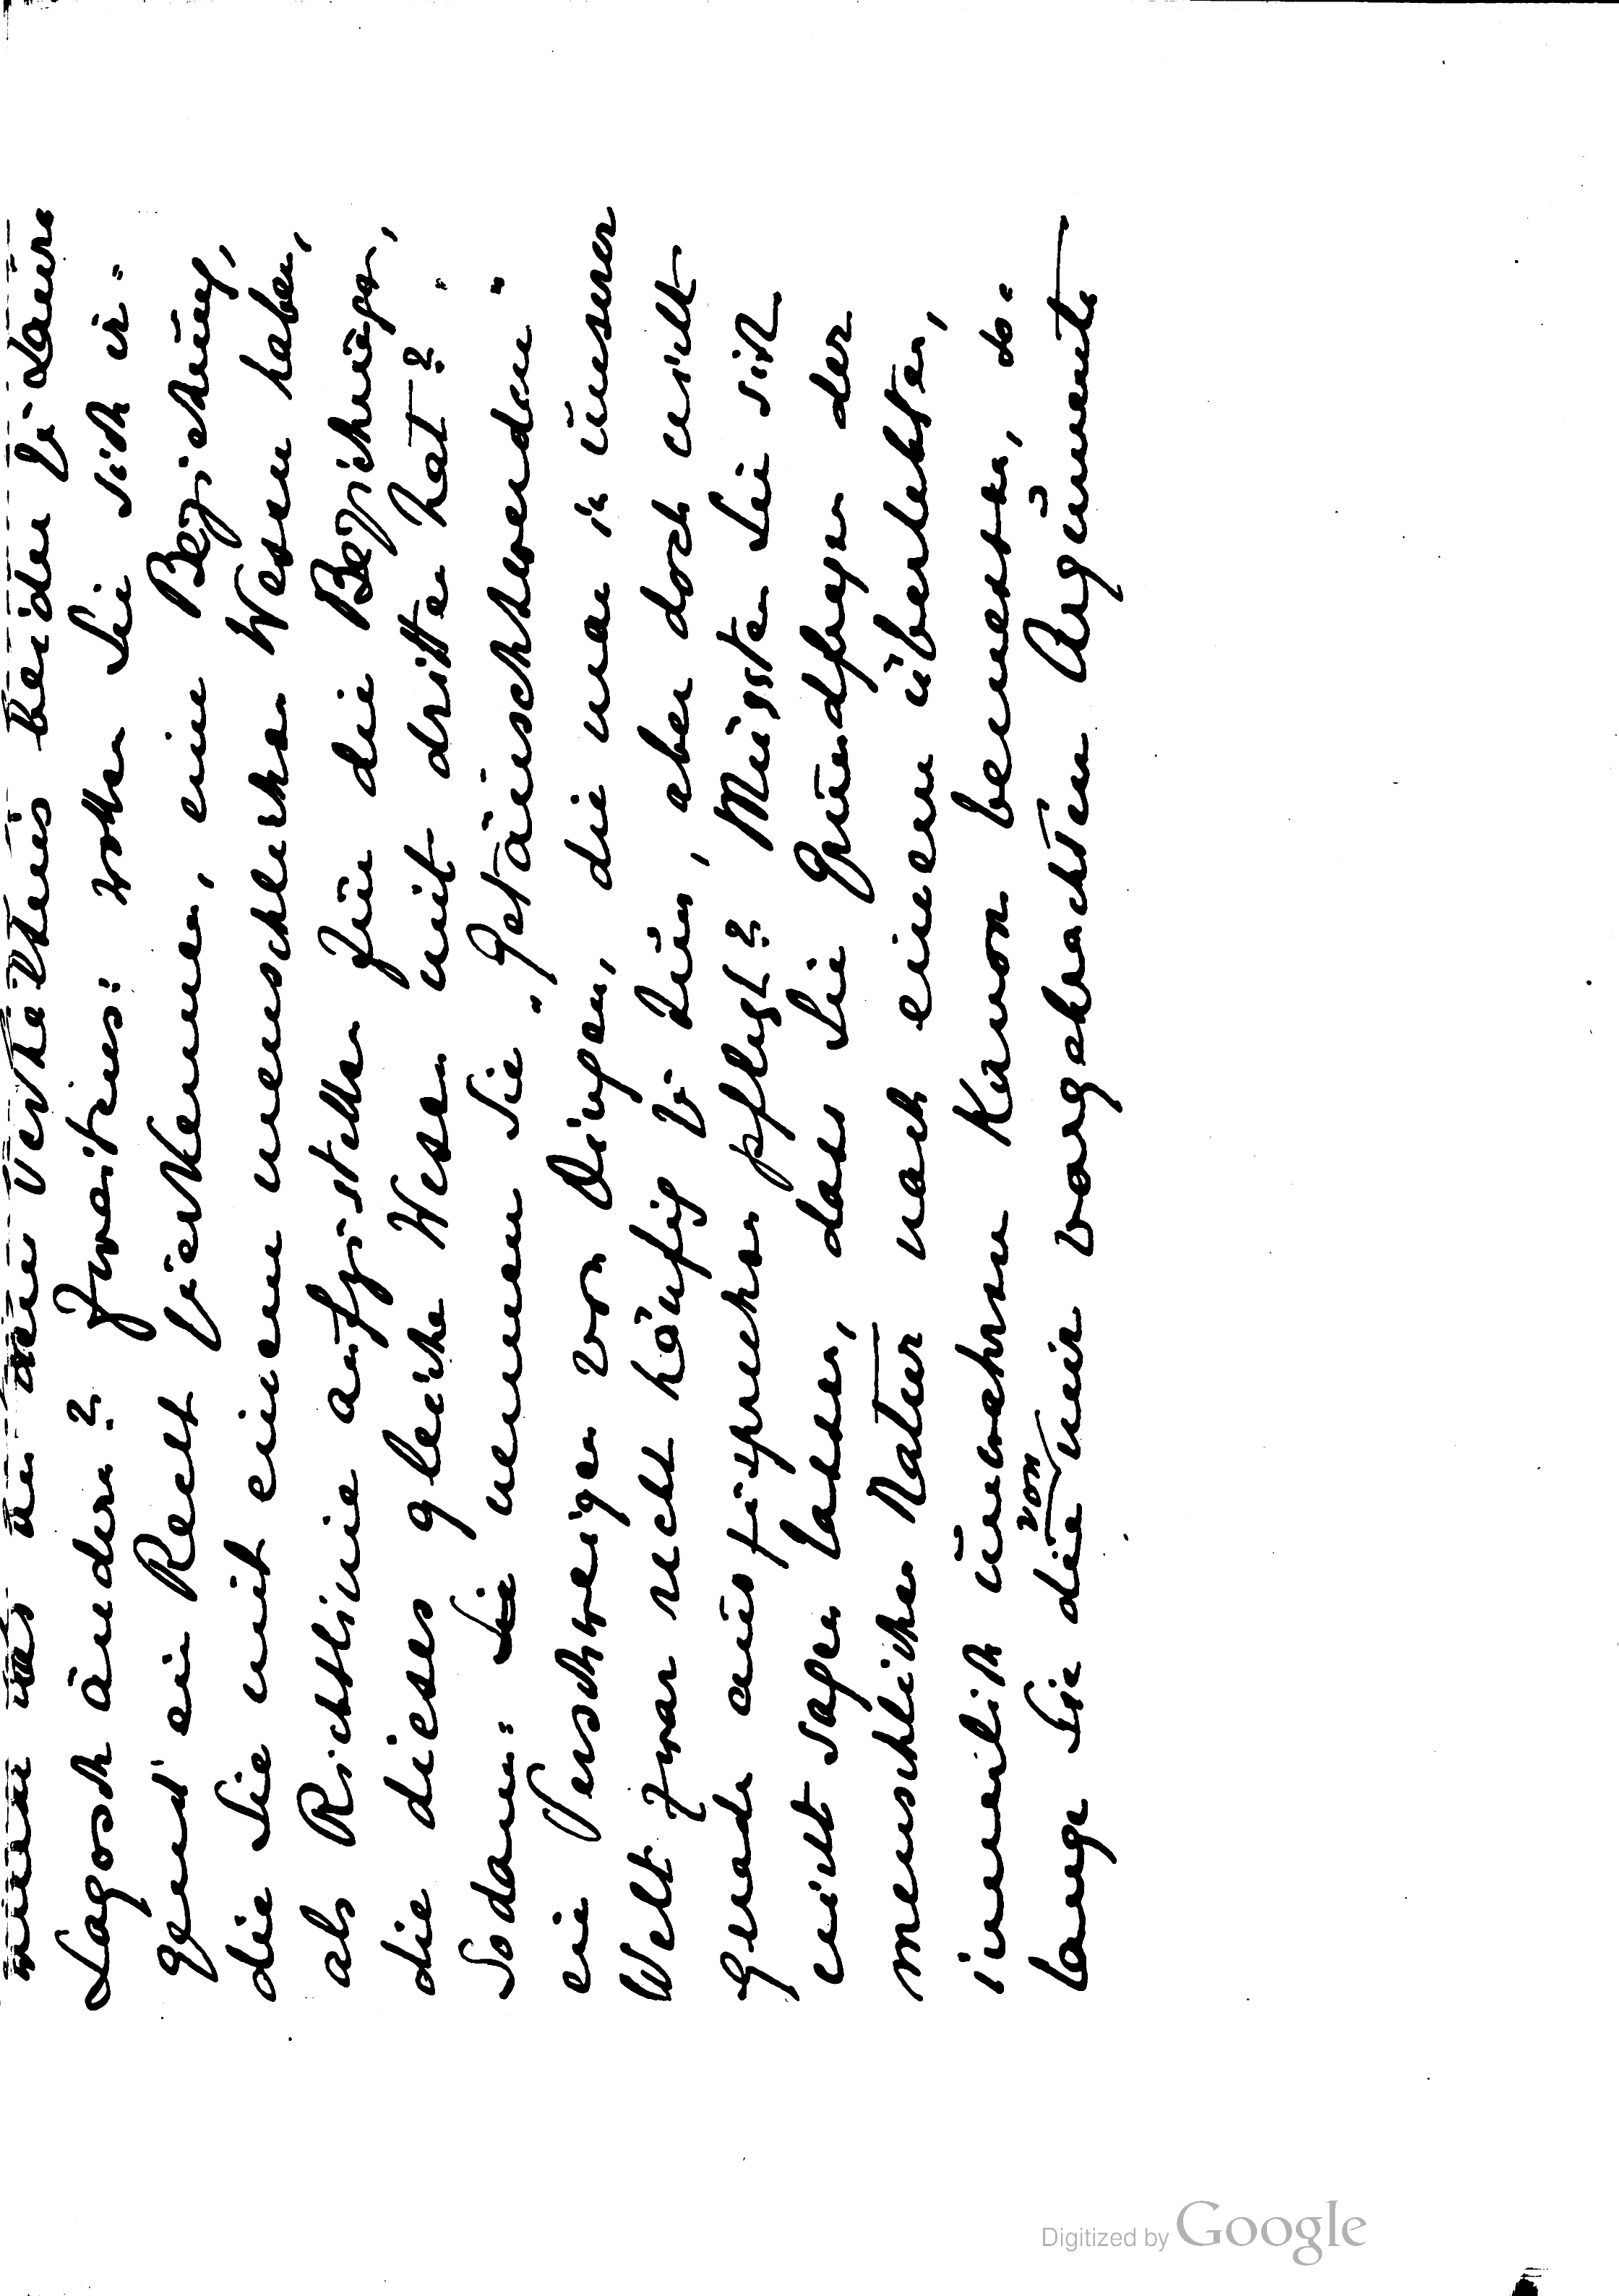 an dem Verhältnis beider zu Laura
Lagosch ändern? Zweitens: wollen Sie sich ir-
gend ein Recht zuerkennen, eine Beziehung,
die Sie mit einem menschlichen Wesen haben,
als Richtlinie aufzustellen für die Beziehungen,
die dieses gleiche Wesen mit dritten hat? -
Sodann: Sie nennen Sie „Getäuschtwerden"
ein Verschweigen von Dingen, die man in unserer
Welt zwar recht häufig zu tun, aber doch nicht
gerade auszusprechen pflegt? Müssten Sie sich
nicht sagen lassen, dass Sie Grundfragen der
menschlichen Natur nach einem überlebten,
innerlich unwahren Kanon bemessen, so-
lange Sie die von mir vorgebrachten Argumente
Digitized by Google